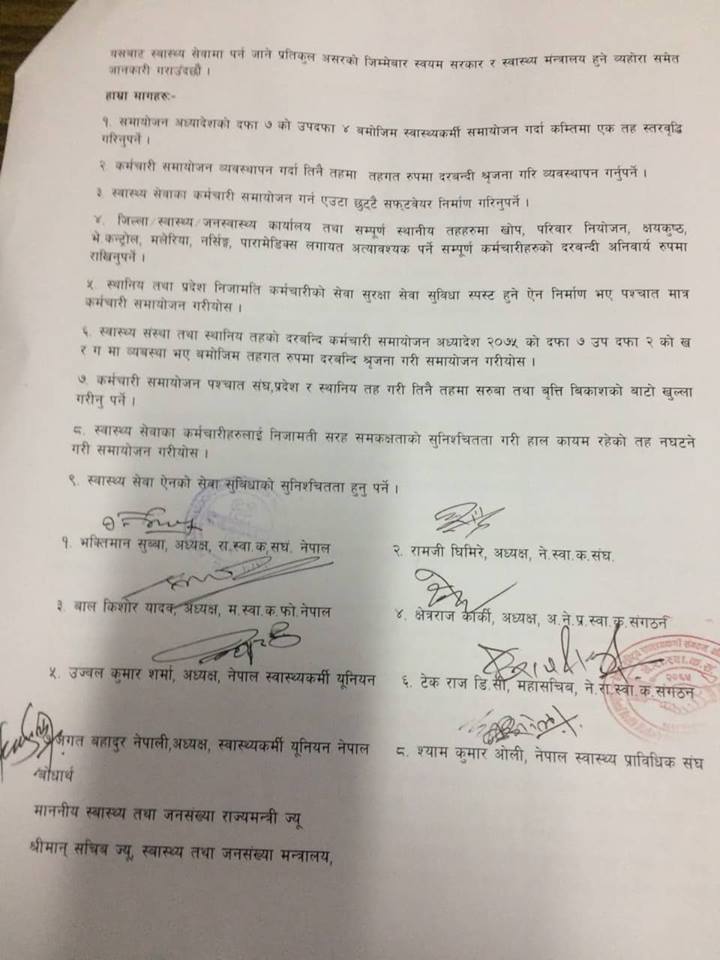 यसबाट स्वास्थ्य सेवामा पर्न जाने प्रतिकुल असरको जिम्मेबार स्वयम सरकार र स्वास्थ्य मन्त्रालय हुने व्यहोरा समेत
जानकारी गराउंदछौं ।
हाम्रा मागहरुः-
१. समायोजन अध्यादेशको दफा ७ को उपदफा ४ बमोजिम स्वास्थ्यकर्मी समायोजन गर्दा कम्तिमा एक तह स्तरवृद्धि
गरिनुपर्ने ।
२. कर्मचारी समायोजन व्यवस्थापन गर्दा तिनै तहमा तहगत रुपमा दरबन्दी श्रृजना गरि व्यवस्थापन गर्नुपर्ने ।
३. स्वास्थ्य सेवाका कर्मचारी समायोजन गर्न एउटा छुट्टै सफ्टवेयर निर्माण गरिनुपर्ने ।
४. जिल्ला/स्वास्थ्य/जनस्वास्थ्य कार्यालय तथा सम्पूर्ण स्थानीय तहहरुमा खोप, परिवार नियोजन, क्षयकुष्ठ,
भे.कन्ट्रोल, मलेरिया, नर्सिङ्ग, पारामेडिक्स लगायत अत्यावश्यक पर्ने सम्पूर्ण कर्मचारीहरुको दरबन्दी अनिवार्य रुपमा
राखिनुपर्ने ।
५. स्थानिय तथा प्रदेश निजामति कर्मचारीको सेवा सुरक्षा सेवा सुविधा स्पस्ट हुने ऐन निर्माण भए पश्चात मात्र
कर्मचारी समायोजन गरीयोस ।
६. स्वास्थ्य संस्था तथा स्थानिय तहको दरबन्दि कर्मचारी समायोजन अध्यादेश २०७५ को दफा ७ उप दफा २ को ख
र ग मा व्यवस्था भए बमोजिम तहगत रुपमा दरबन्दि श्रृजना गरी समायोजन गरीयोस ।
७. कर्मचारी समायोजन पश्चात संघ,प्रदेश र स्थानिय तह गरी तिनै तहमा सरुबा तथा बृत्ति बिकाशको बाटो खुल्ला
गरीनु पर्ने ।
८. स्वास्थ्य सेवाका कर्मचारीहरुलाई निजामती सरह समकक्षताको सुनिश्चितता गरी हाल कायम रहेको तह नघटने
गरी समायोजन गरीयोस ।
९. स्वास्थ्य सेवा ऐनको सेवा सुविधाको सुनिश्चितता हुनु पर्ने ।
१. भक्तिमान सुब्बा, अध्यक्ष, रा.स्वा.क.सघं. नेपाल
२. रामजी घिमिरे, अध्यक्ष, ने.स्वा.क.संघ.
३. बाल किशोर यादव, अध्यक्ष, म.स्वा.क.फो.नेपाल
४. क्षेत्रराज कार्की, अध्यक्ष, अ.ने.प्र.स्वा.क.संगठन
५. उज्वल कुमार शर्मा, अध्यक्ष, नेपाल स्वास्थ्यकर्मी यूनियन
६. टेक राज डि.सी, महासचिब, ने.रा.स्वा.क.संगठन
जगत बहादुर नेपाली,अध्यक्ष, स्वास्थ्यकर्मी यूनियन नेपाल
८. श्याम कुमार ओली, नेपाल स्वास्थ्य प्राविधिक संघ
बोधार्थ
माननीय स्वास्थ्य तथा जनसंख्या राज्यमन्त्री ज्यू
श्रीमान् सचिब ज्यू, स्वास्थ्य तथा जनसंख्या मन्त्रालय,